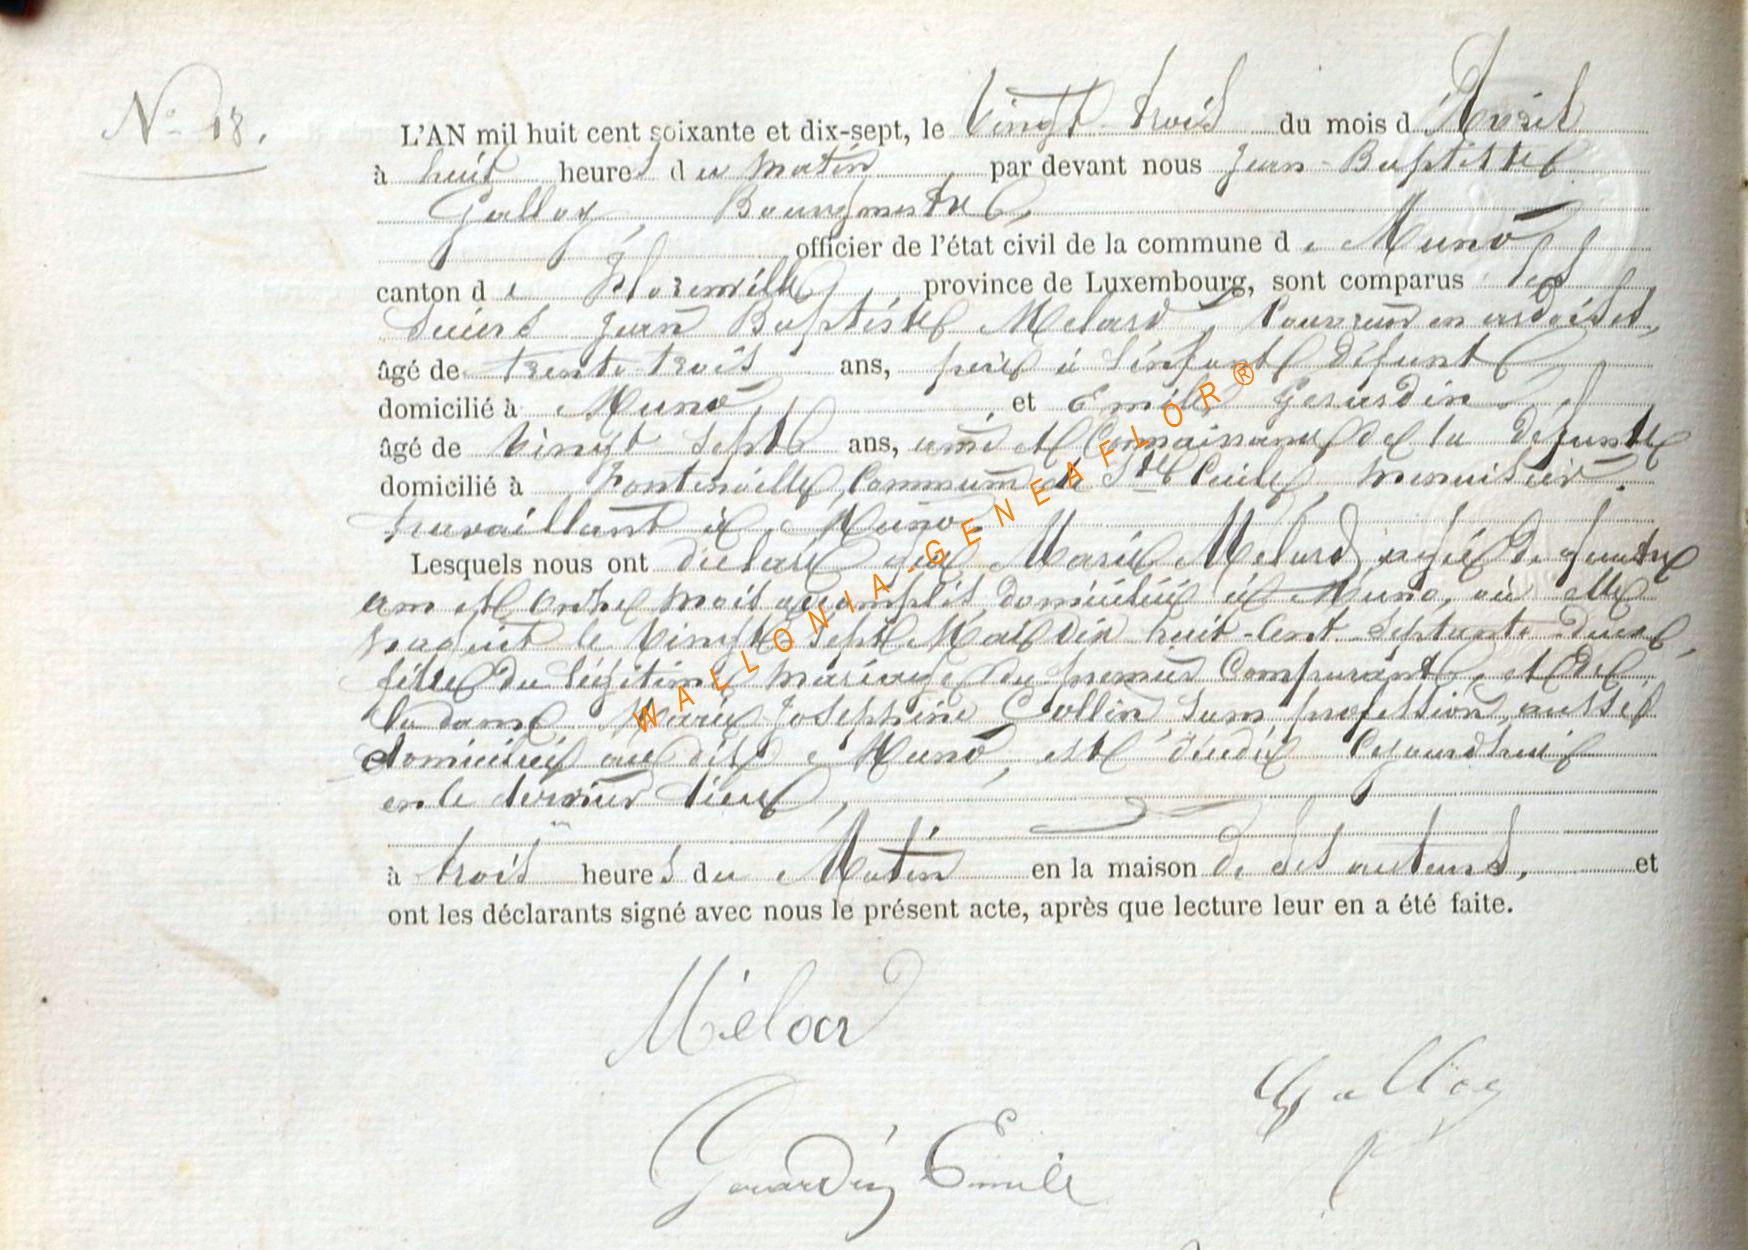 N° 18.
L'AN mil huit cent soixante et dix-sept, le vingt-trois du mois d'Avril
à huit heures du matin par devant nous Jean-Baptiste
Galloy, Bourgmestre,
officier de l'état civil de la commune de Muno
canton de Florenville province de Luxembourg, sont comparus les
Sieurs Jean Baptiste Melard, Couvreur en ardoises,
âgé de trente-trois ans, père à l'enfant défunt,
domicilié à Muno, et Emile Gerardin,
âgé de vingt sept ans, ami et Connaissance de la défunte
domicilié à Fontenoille, Commune de Ste Cécile, menuisier
travaillant à Muno.
Lesquels nous ont déclaré que Marie Melard, agée de quatre
ans et onze mois accomplis, domiciliée à Muno, où elle
naquit le vingt-sept Mai dix huit-cent septante-deux,
fille du légitime mariage du premier Comparant, et de
la dame Marie Josephine Collin, sans profession, aussi
domiciliée au dit Muno, est décédée cejourd'hui
en le dernier lieu,
à trois heures du Matin en la maison de ses auteurs, et
ont les déclarants signé avec nous le présent acte, après que lecture leur en a été faite.
Mélard
Galloy
Gerardin Emile
WALLONIA-GENEAFLOR®